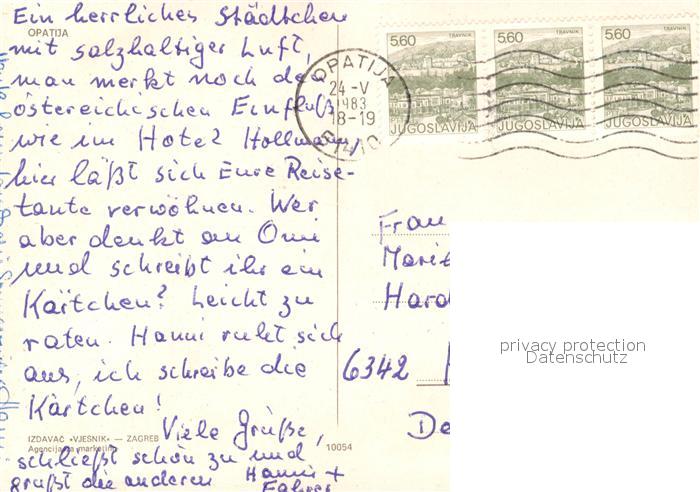 Ein herrliches Städtchen
OPATIJA
mit salzhaltiger Luft,
man merkt noch den
östereichischen Einfluß
wie im Hotel Hollmann,
hier läßt sich Eure Reise-
tante verwöhnen. Wer
aber denkt an Omi
und schreibt ihr ein
Kärtchen? Leicht zu
raten. Hanni ruht sich
aus, ich schreibe die
Kärtchen!
Viele Grüße,
IZDAVAČ »VJESNIK« — ZAGREB
Agencija za marketing
schließt schön zu und
grüßt die anderen Hanni +
10054
OPATIJA
24-V
1983
18-19
5.60 TRAVNIK
JUGOSLAVIJA
5.60 TRAVNIK
JUGOSLAVIJA
5.60 TRAVNIK
JUGOSLAVIJA
Frau
Marit
Hard
6342
De
privacy protection
Datenschutz